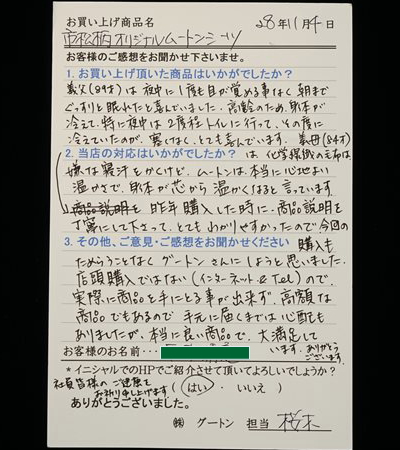 お買い上げ商品名
28年11月4日
市松柄オリジナルムートンシーツ
お客様のご感想をお聞かせ下さいませ。
1. お買い上げ頂いた商品はいかがでしたか?
義父(89才)は夜中に1度も目が覚める事なく朝まで
ぐっすりと眠れたと喜んでいました。高齢のため、身体が
冷えて、特に夜中は2度程トイレに行って、その度に
冷えていたのが、寒くなく、とても喜んでいます。義母(84才)
2. 当店の対応はいかがでしたか?
は、化学繊維の毛布は、
嫌な寒汗をかくけど、ムートンは、本当に心地よい
温かさで、身体が芯から温かくなると言っています。
商品説明を昨年購入した時に、商品説明を
丁寧にして下さって、とてもわかりやすかったので今回の
3. その他、ご意見・ご感想をお聞かせください
購入も
ためらうことなくグートンさんにしようと思いました。
店頭購入ではない(インターネット&Tel)ので、
実際に商品を手にとる事が出来ず、高額な
商品でもあるので、手元に届くまでは心配も
ありましたが、本当に良い商品で、大満足して
います。ありがとうございます。
お客様のお名前・・・
*イニシャルでのHPでご紹介させて頂いてよろしいでしょうか?
社員皆様のご健康をお祈り申し上げます
(はい ・ いいえ)
ありがとうございました。
㈱ グートン 担当 桜木